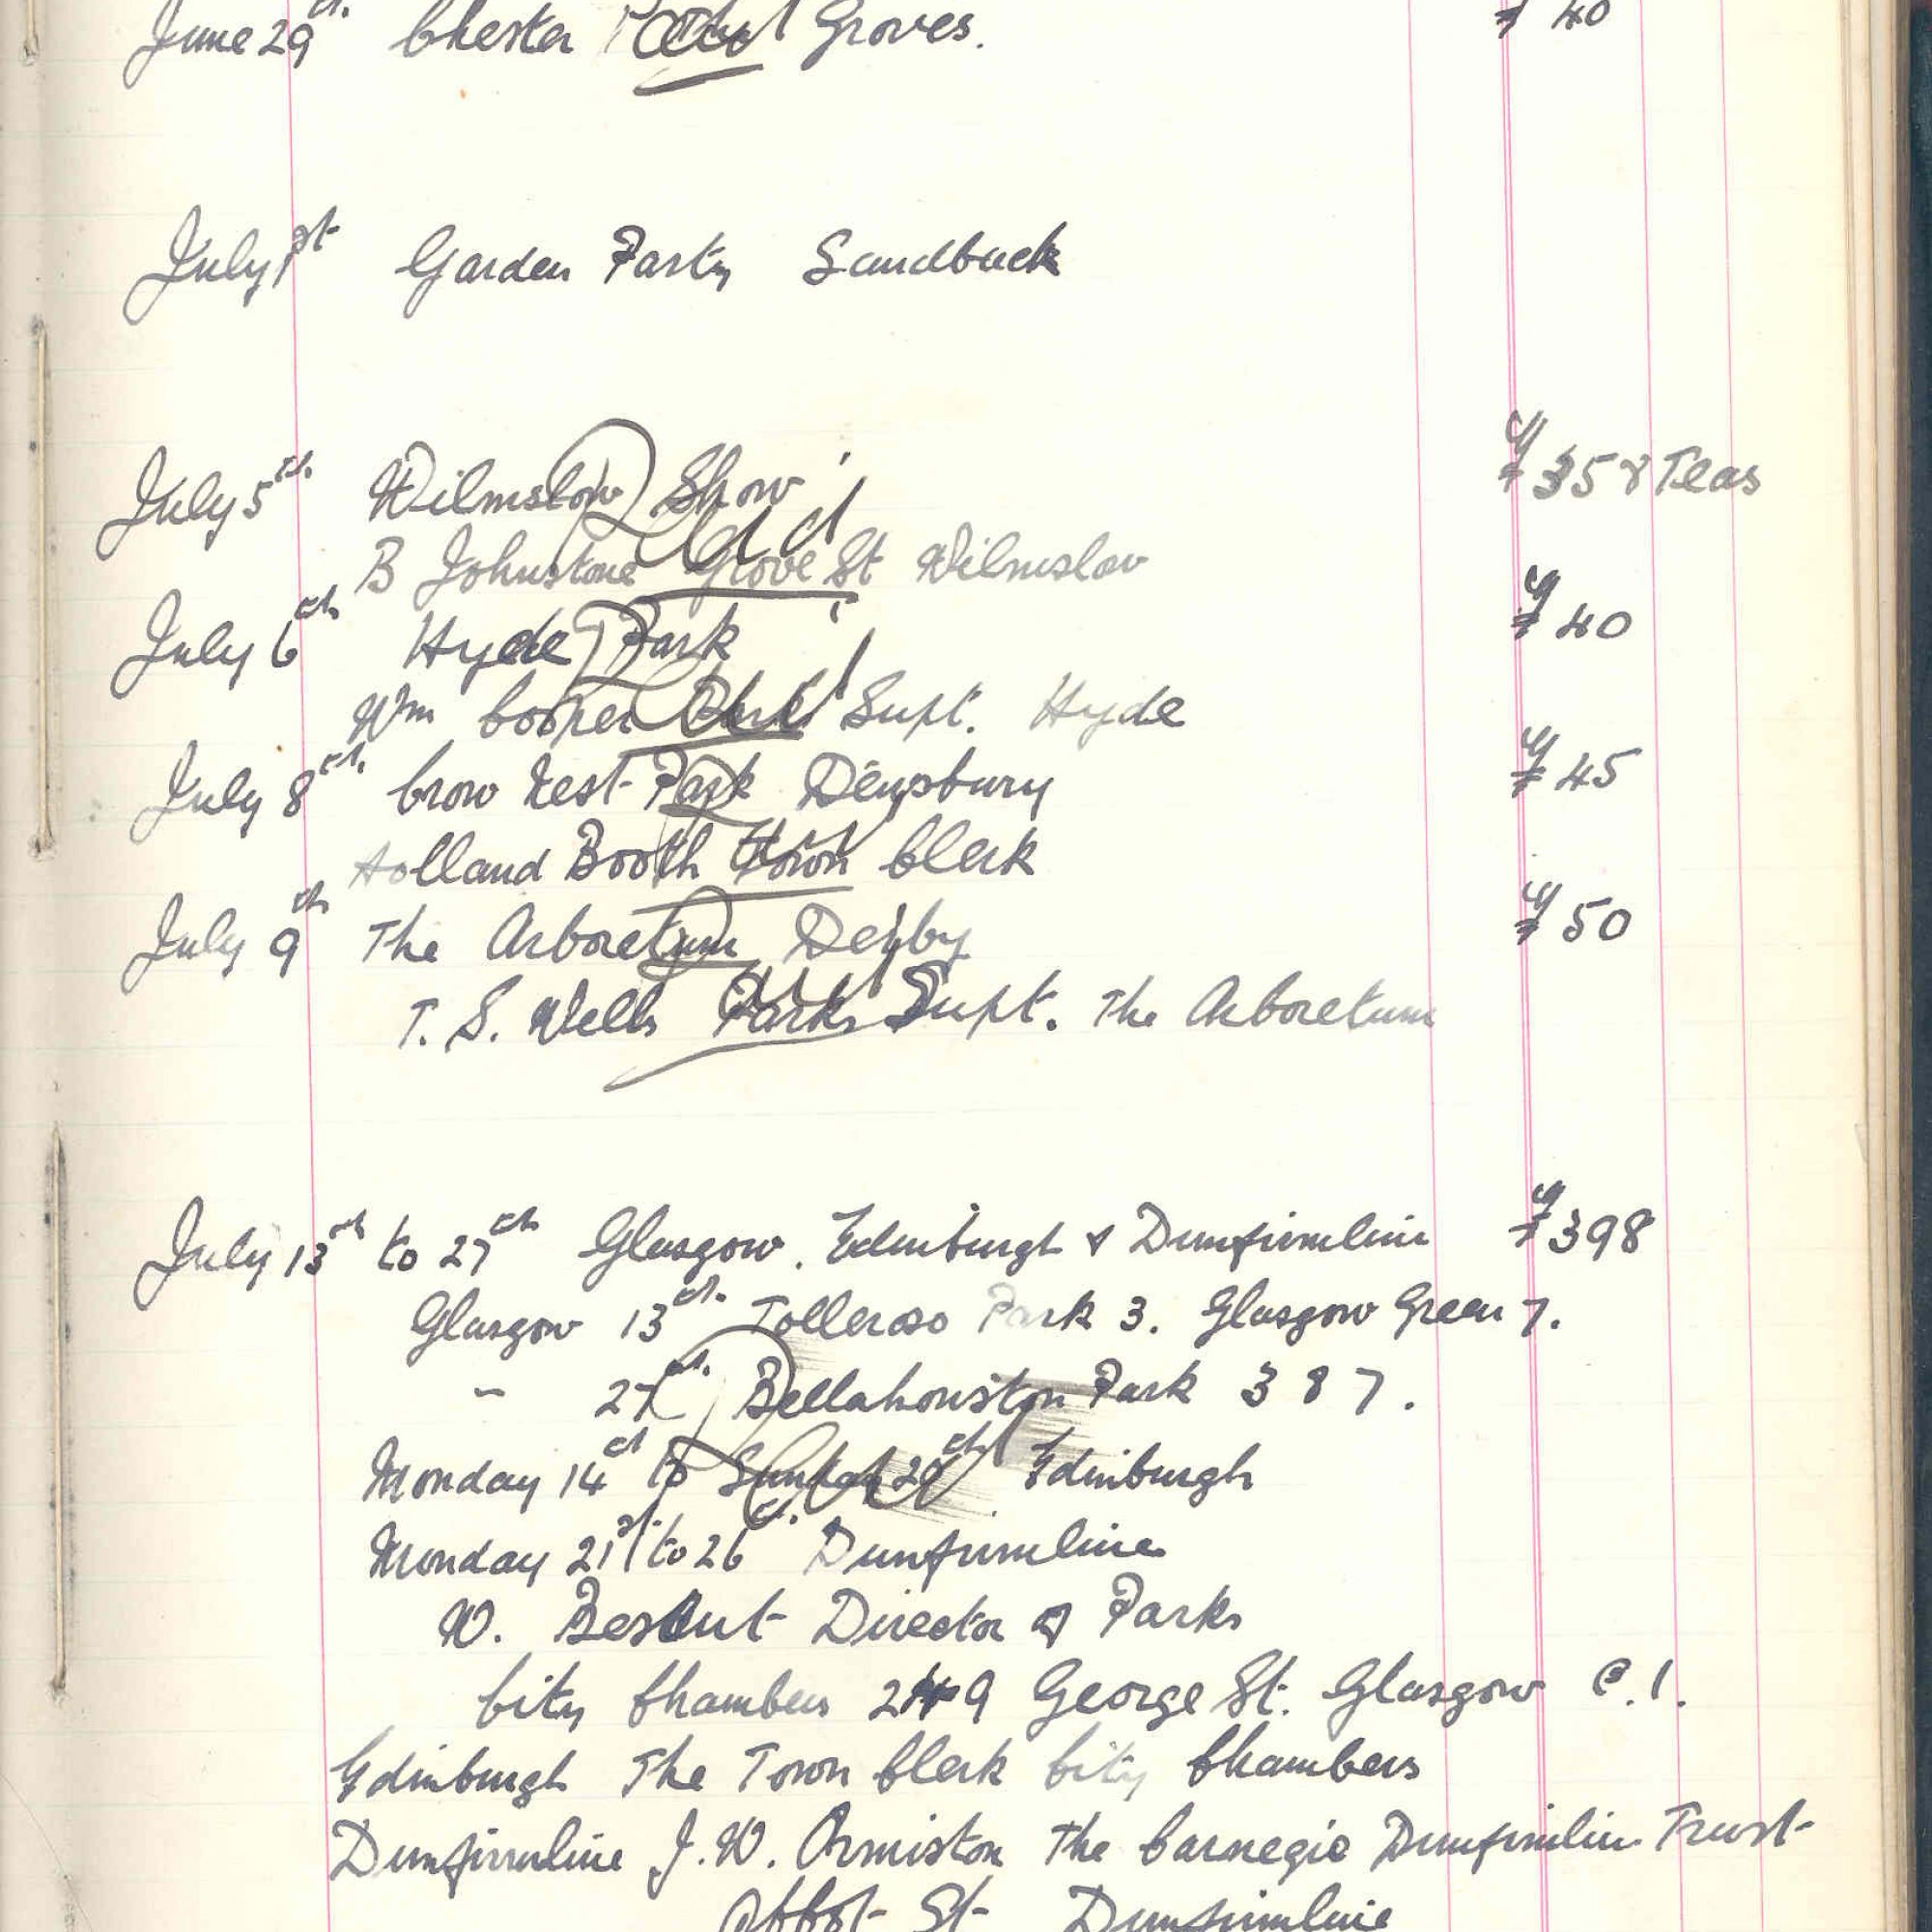 June 29th. Chester Groves. £ 40
July 1st Garden Party Sandback
July 5th Wilmslow Show £ 35 & Teas
B Johnstone Grove St Wilmslow
July 6th Hyde Park £ 40
Wm Cooper Park Supt. Hyde
July 8th. Crow Nest Park Dewsbury £ 45
Holland Booth Town Clerk
July 9th The Arboretum Derby £ 50
T. S. Wells Parks Supt. The Arboretum
July 13th to 27th Glasgow. Edinburgh & Dunfirmline £ 398
Glasgow 13th. Tollcross Park 3. Glasgow Green 7.
" 27th. Bellahouston Park 3 & 7.
Monday 14th to Sunday 20th Edinburgh
Monday 21st to 26th. Dunfirmline
W. Director of Parks
City Chambers 249 George St. Glasgow C.1.
Edinburgh The Town Clerk City Chambers
Dunfirmline J. W. Ormiston The Carnegie Dunfirmline Trust
Abbot St Dunfirmline